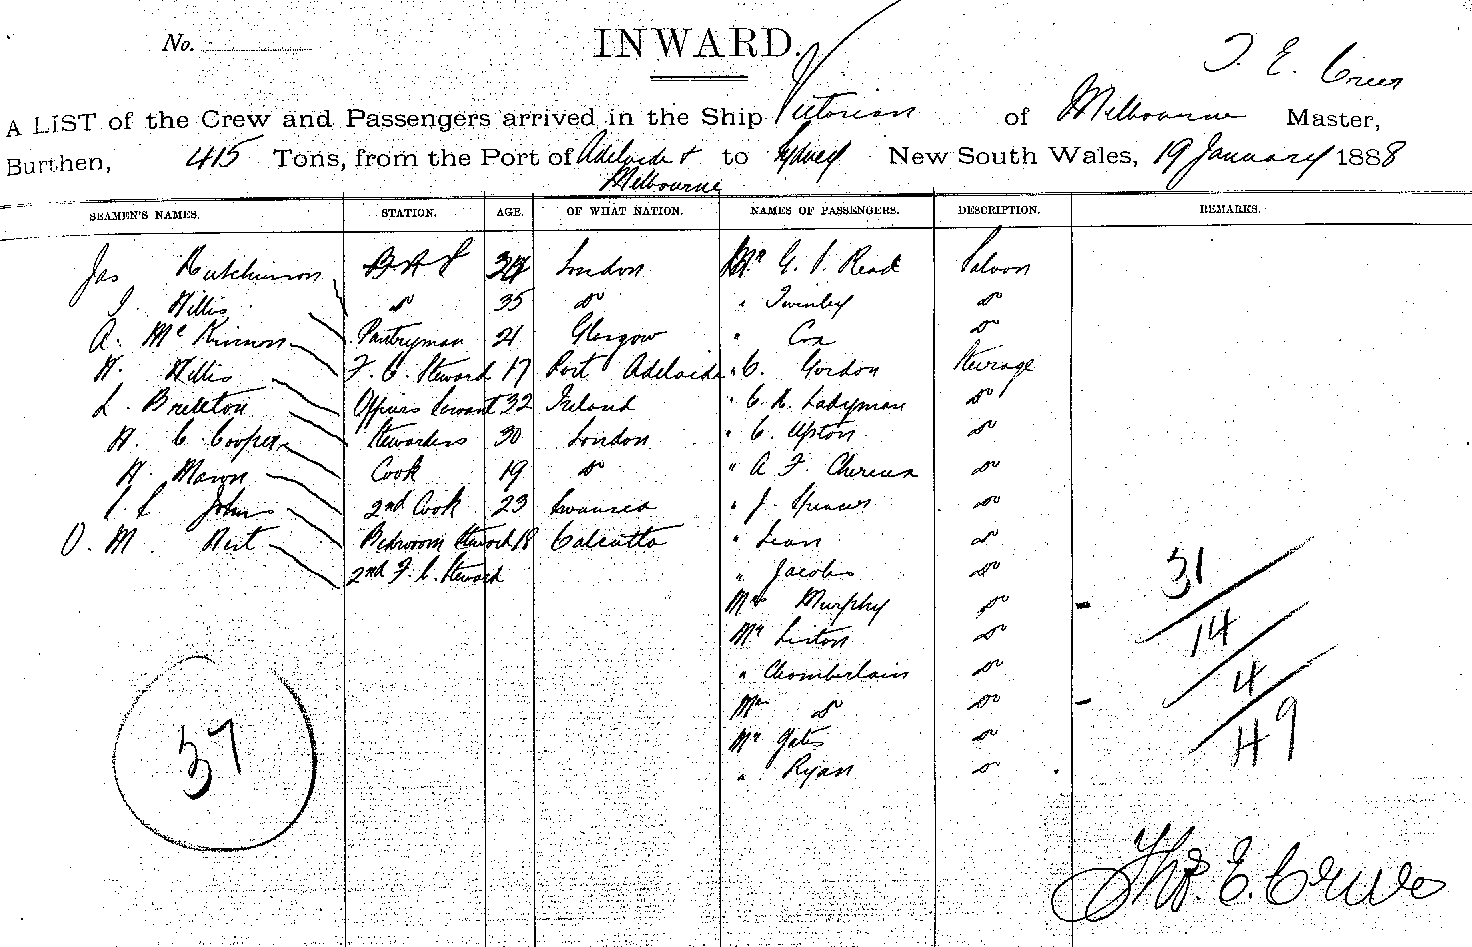 No.
INWARD.
T. E. Cruse
A LIST of the Crew and Passengers arrived in the Ship Victorian of Melbourne Master,
Burthen, 415 Tons, from the Port of Adelaide & Melbourne to Sydney New South Wales, 19 January 1888
SEAMEN'S NAMES. STATION. AGE. OF WHAT NATION. NAMES OF PASSENGERS. DESCRIPTION. REMARKS.
Jas Hutchinson London Mr G. Read Saloon
Willis do 35 do " Twinley do
A. McKinnon Pantryman 21 Glasgow " Cox do
H. Willis F. C. Steward 17 Port Adelaide " C. Gordon Steerage
L. Officers Servant 32 Ireland " C. H. Ladyman do
H. C. Cooper Stewardess 30 London " C. Upton do
H. Mason Cook 19 do " A F. do
Johns 2nd Cook 23 Swansea " J. Spencer do
O. M. Bedroom Steward 18 Calcutta " do
2nd F. C. Steward " Jacobs do
Mrs Murphy do
Mr Liston do
" Chamberlain do
Mrs do do
Mr Yates do
" Ryan do
31
14
4
49
37
Thos. E. Cruse